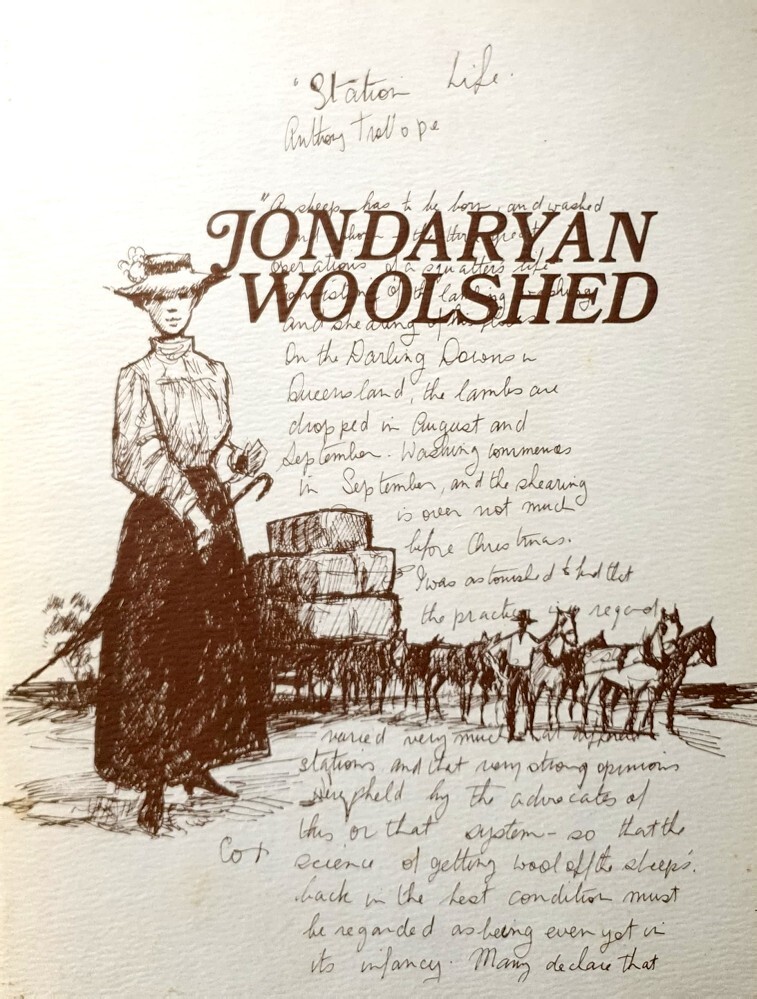 "Station Life.
Anthony Trollope
"A sheep has to be born, and washed
and shorn
JONDARYAN
operations of a squatters life
WOOLSHED
and shearing of
On the Darling Downs in
Queensland, the lambs are
dropped in August and
September. Washing commences
in September, and the shearing
is over not much
before Christmas.
I was astonished to find that
the practice in regard
varied very much at
stations and that very strong opinions
upheld by the advocates of
this or that system - so that the
Cox
science of getting wool off the sheep's.
back in the best condition must
be regarded as being even yet in
its infancy. Many declare that